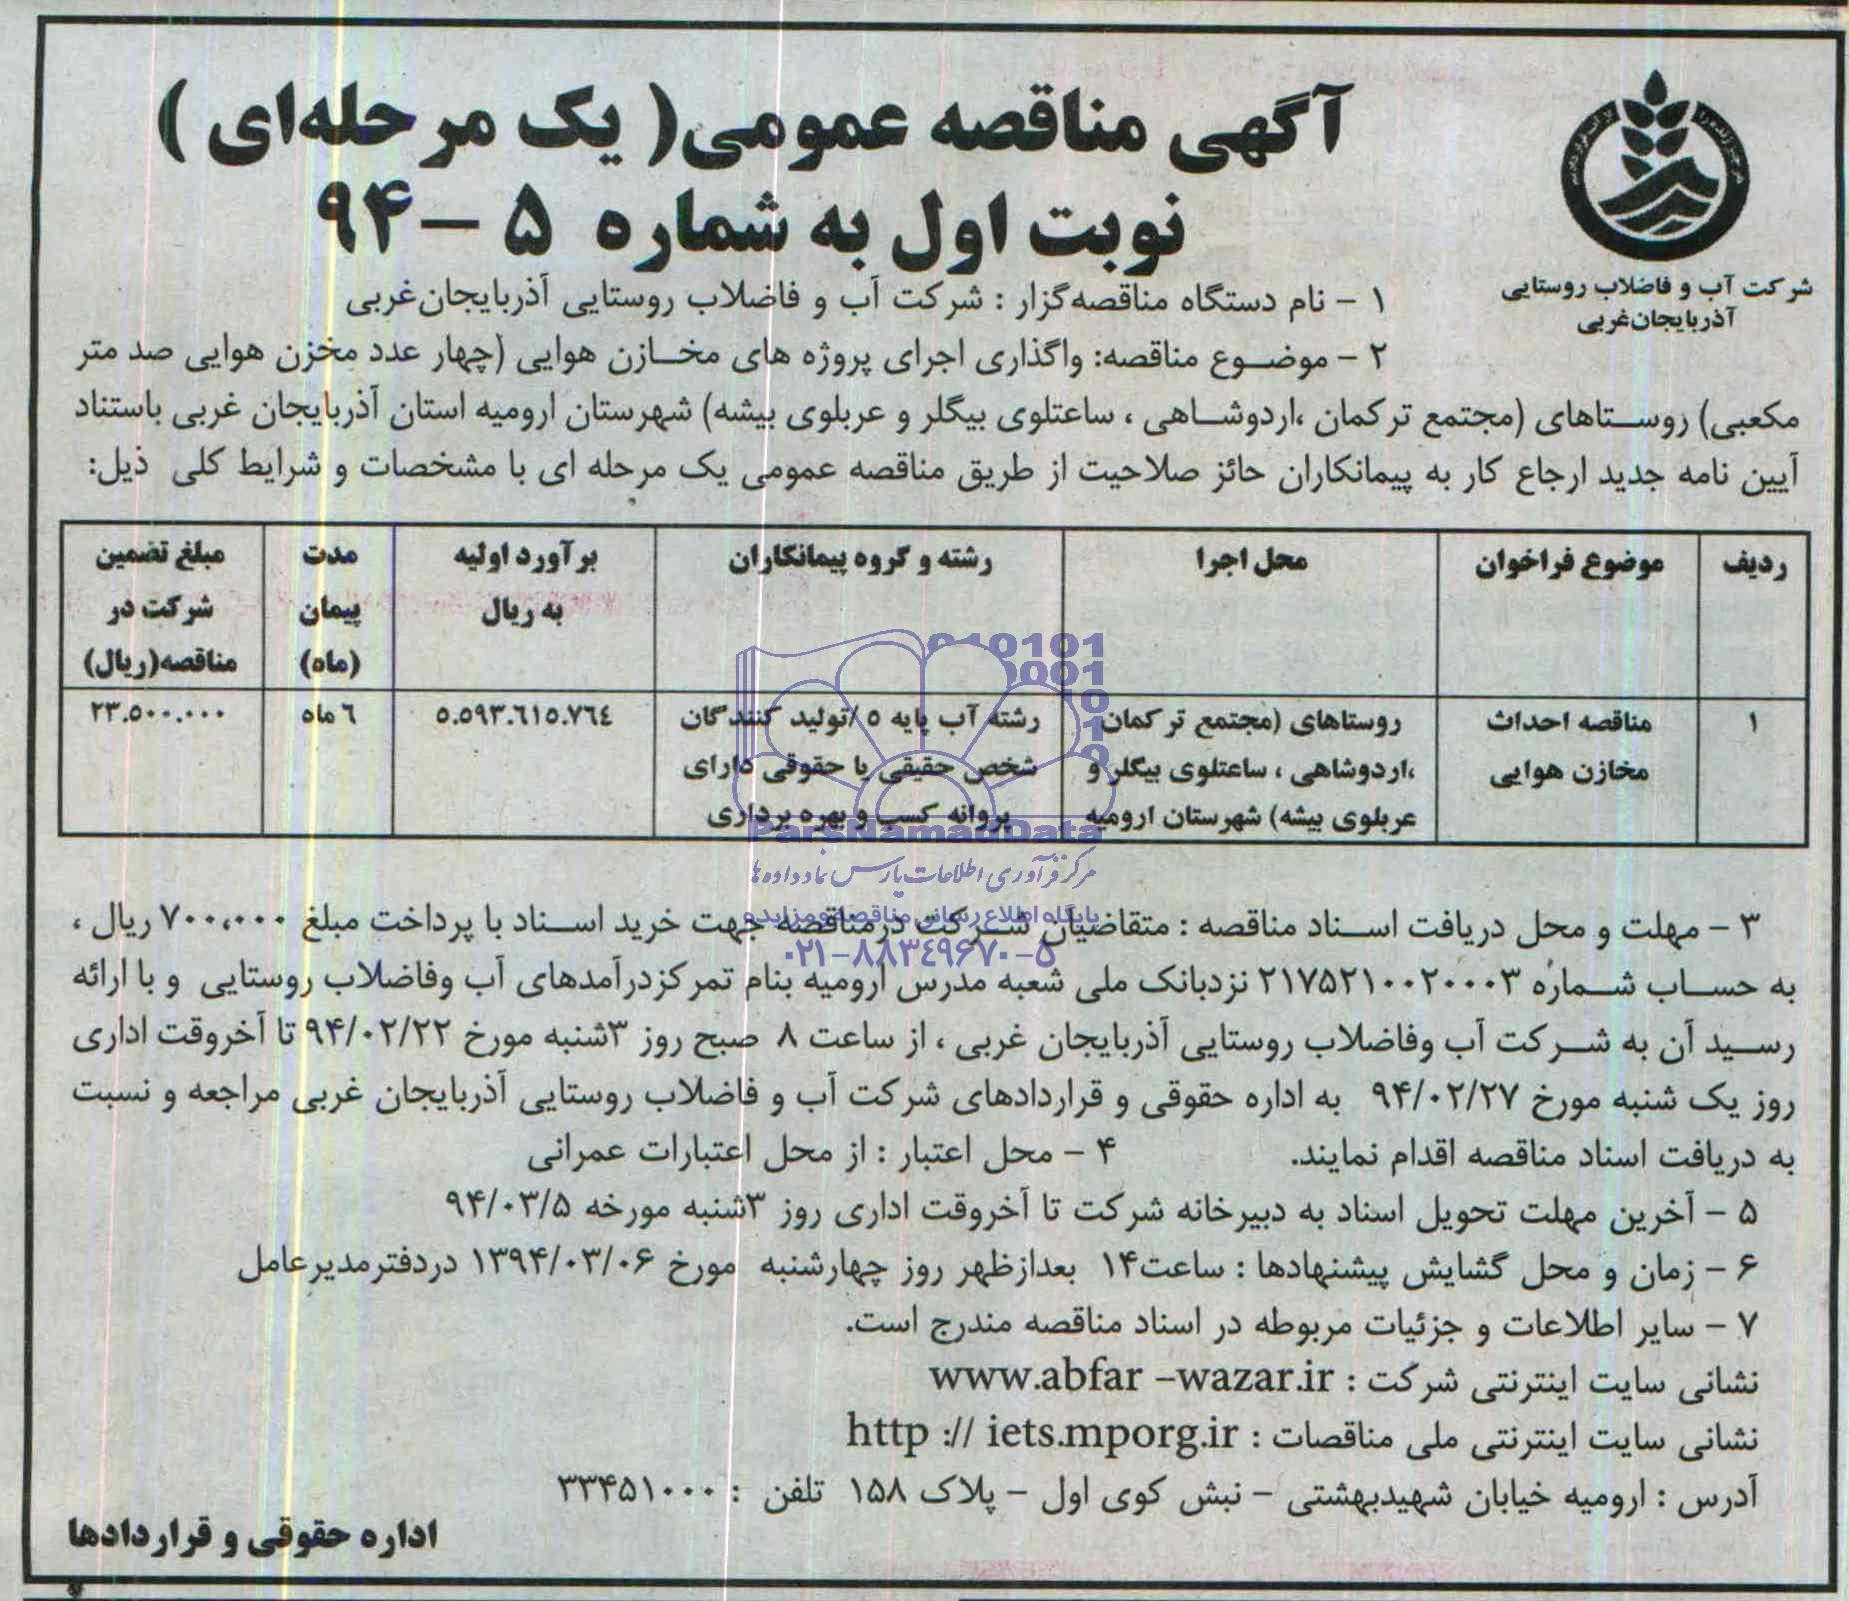 آگهی مناقصه عمومی( یک مرحله‌ای )
نوبت اول به شماره ۵ – ۹۴
شرکت آب و فاضلاب روستایی
آذربایجان‌غربی
۱ – نام دستگاه مناقصه‌گزار : شرکت آب و فاضلاب روستایی آذربایجان‌غربی
۲ – موضوع مناقصه: واگذاری اجرای پروژه های مخازن هوایی (چهار عدد مخزن هوایی صد متر
مکعبی) روستاهای (مجتمع ترکمان ،اردوشاهی ، ساعتلوی بیگلر و عربلوی بیشه) شهرستان ارومیه استان آذربایجان غربی باستناد
آیین نامه جدید ارجاع کار به پیمانکاران حائز صلاحیت از طریق مناقصه عمومی یک مرحله ای با مشخصات و شرایط کلی ذیل:
ردیف | موضوع فراخوان | محل اجرا | رشته و گروه پیمانکاران | برآورد اولیه به ریال | مدت پیمان (ماه) | مبلغ تضمین شرکت در مناقصه(ریال)
۱ | مناقصه احداث مخازن هوایی | روستاهای (مجتمع ترکمان ،اردوشاهی ، ساعتلوی بیگلر و عربلوی بیشه) شهرستان ارومیه | رشته آب پایه ۵ /تولید کنندگان شخص حقیقی یا حقوقی دارای پروانه کسب و بهره برداری | ۵.۵۹۳.۶۱۵.۷۶۴ | ۶ ماه | ۲۳.۵۰۰.۰۰۰
010101
0001
ParsNamadData
مرکز فرآوری اطلاعات پارس نماد داده‌ها
پایگاه اطلاع رسانی مناقصه و مزایده
۰۲۱-۸۸۳۴۹۶۷۰-۵
۳ – مهلت و محل دریافت اسناد مناقصه : متقاضیان شرکت درمناقصه جهت خرید اسناد با پرداخت مبلغ ۷۰۰،۰۰۰ ریال ،
به حساب شماره ۲۱۷۵۲۱۰۰۲۰۰۰۳ نزدبانک ملی شعبه مدرس ارومیه بنام تمرکزدرآمدهای آب وفاضلاب روستایی و با ارائه
رسید آن به شرکت آب وفاضلاب روستایی آذربایجان غربی ، از ساعت ۸ صبح روز ۳شنبه مورخ ۹۴/۰۲/۲۲ تا آخروقت اداری
روز یک شنبه مورخ ۹۴/۰۲/۲۷ به اداره حقوقی و قراردادهای شرکت آب و فاضلاب روستایی آذربایجان غربی مراجعه و نسبت
به دریافت اسناد مناقصه اقدام نمایند. ۴ – محل اعتبار : از محل اعتبارات عمرانی
۵ – آخرین مهلت تحویل اسناد به دبیرخانه شرکت تا آخروقت اداری روز ۳شنبه مورخه ۹۴/۰۳/۵
۶ – زمان و محل گشایش پیشنهادها : ساعت۱۴ بعدازظهر روز چهارشنبه مورخ ۱۳۹۴/۰۳/۰۶ دردفترمدیرعامل
۷ – سایر اطلاعات و جزئیات مربوطه در اسناد مناقصه مندرج است.
نشانی سایت اینترنتی شرکت : www.abfar –wazar.ir
نشانی سایت اینترنتی ملی مناقصات : http :// iets.mporg.ir
آدرس : ارومیه خیابان شهیدبهشتی – نبش کوی اول – پلاک ۱۵۸ تلفن : ۳۳۴۵۱۰۰۰
اداره حقوقی و قراردادها